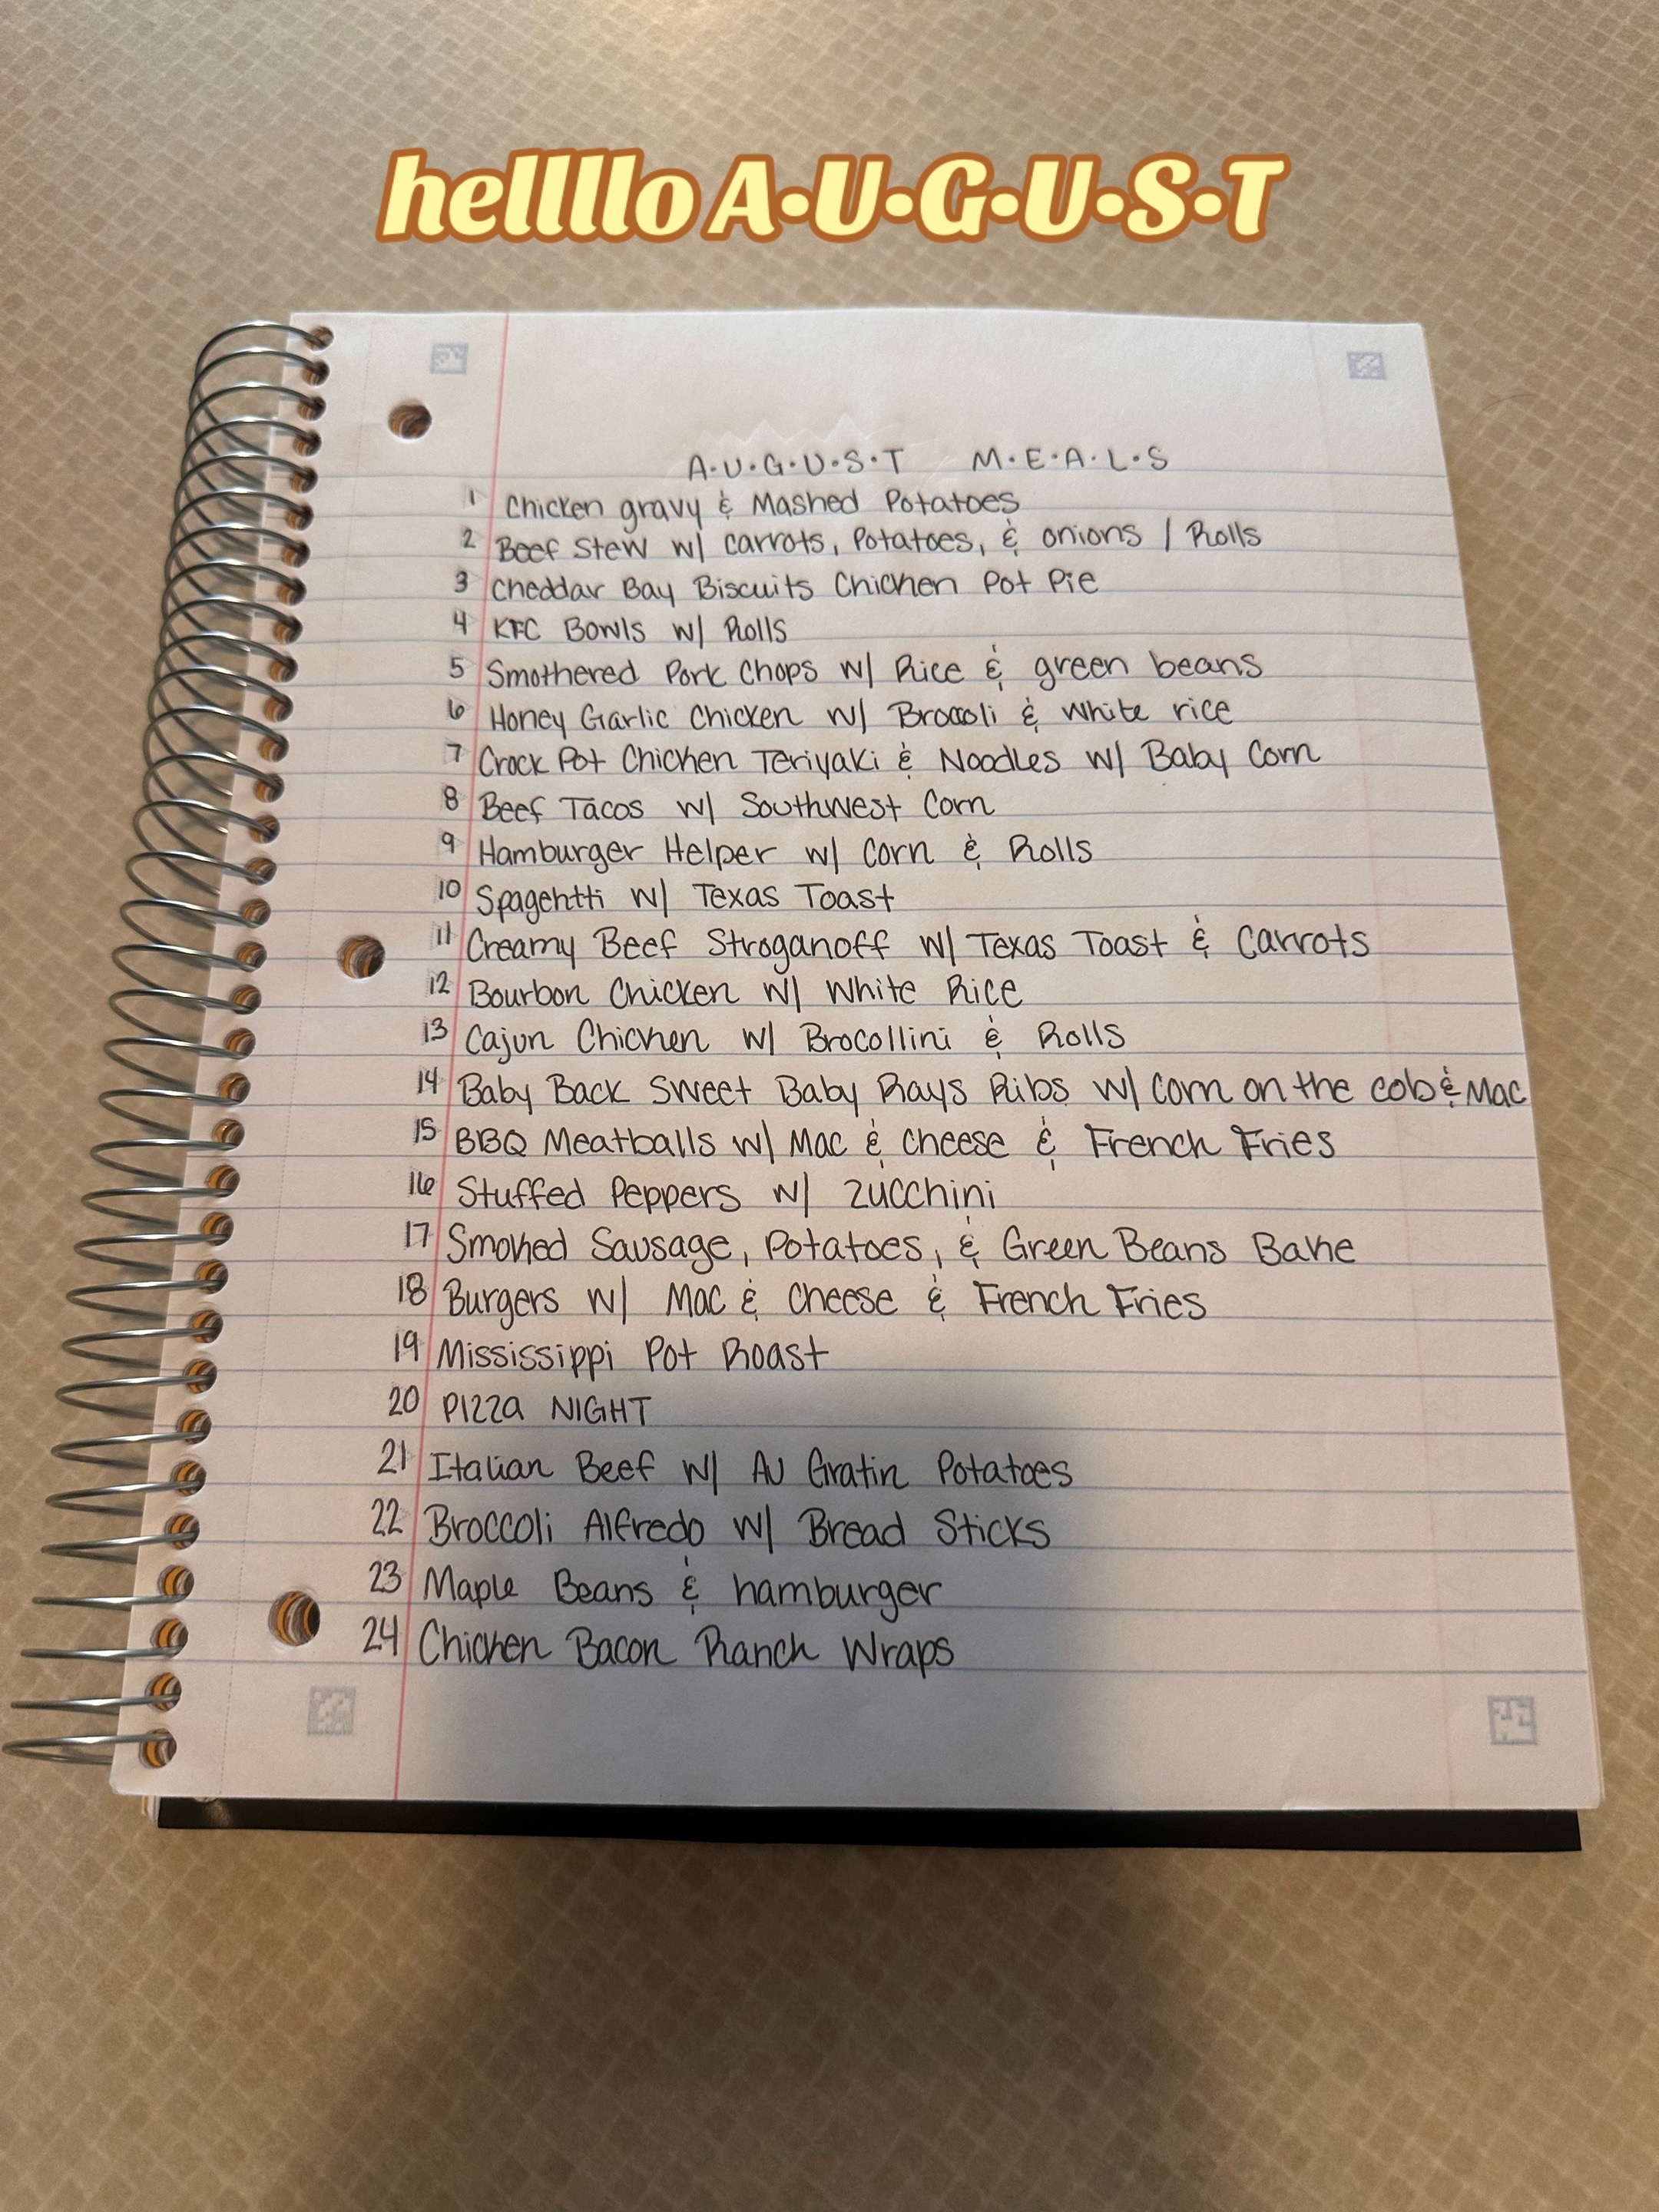 hellllo A•U•G•U•S•T
A•U•G•U•S•T M•E•A•L•S
1 Chicken gravy & Mashed Potatoes
2 Beef Stew w/ carrots, Potatoes, & onions / Rolls
3 Cheddar Bay Biscuits Chicken Pot Pie
4 KFC Bowls w/ Rolls
5 Smothered Pork Chops w/ Rice & green beans
6 Honey Garlic Chicken w/ Broccoli & White rice
7 Crock Pot Chicken Teriyaki & Noodles w/ Baby Corn
8 Beef Tacos w/ Southwest Corn
9 Hamburger Helper w/ Corn & Rolls
10 Spagehtti w/ Texas Toast
11 Creamy Beef Stroganoff w/ Texas Toast & Carrots
12 Bourbon Chicken w/ White Rice
13 Cajun Chicken w/ Brocollini & Rolls
14 Baby Back Sweet Baby Rays Ribs w/ corn on the cob & Mac
15 BBQ Meatballs w/ Mac & Cheese & French Fries
16 Stuffed Peppers w/ Zucchini
17 Smoked Sausage, Potatoes, & Green Beans Bake
18 Burgers w/ Mac & Cheese & French Fries
19 Mississippi Pot Roast
20 PIZZA NIGHT
21 Italian Beef w/ AU Gratin Potatoes
22 Broccoli Alfredo w/ Bread Sticks
23 Maple Beans & hamburger
24 Chicken Bacon Ranch Wraps